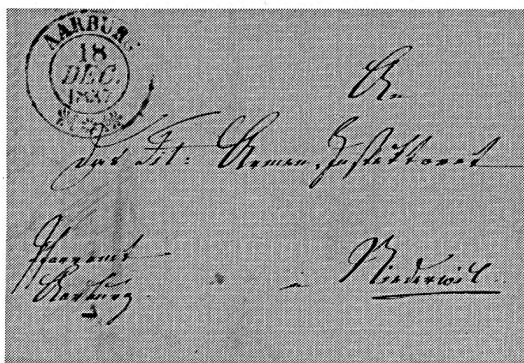 AARBURG
18
DEC.
1837
An
Das Tit: Armen-Inspektorat
Pfarramt
Aarburg
Niederwil